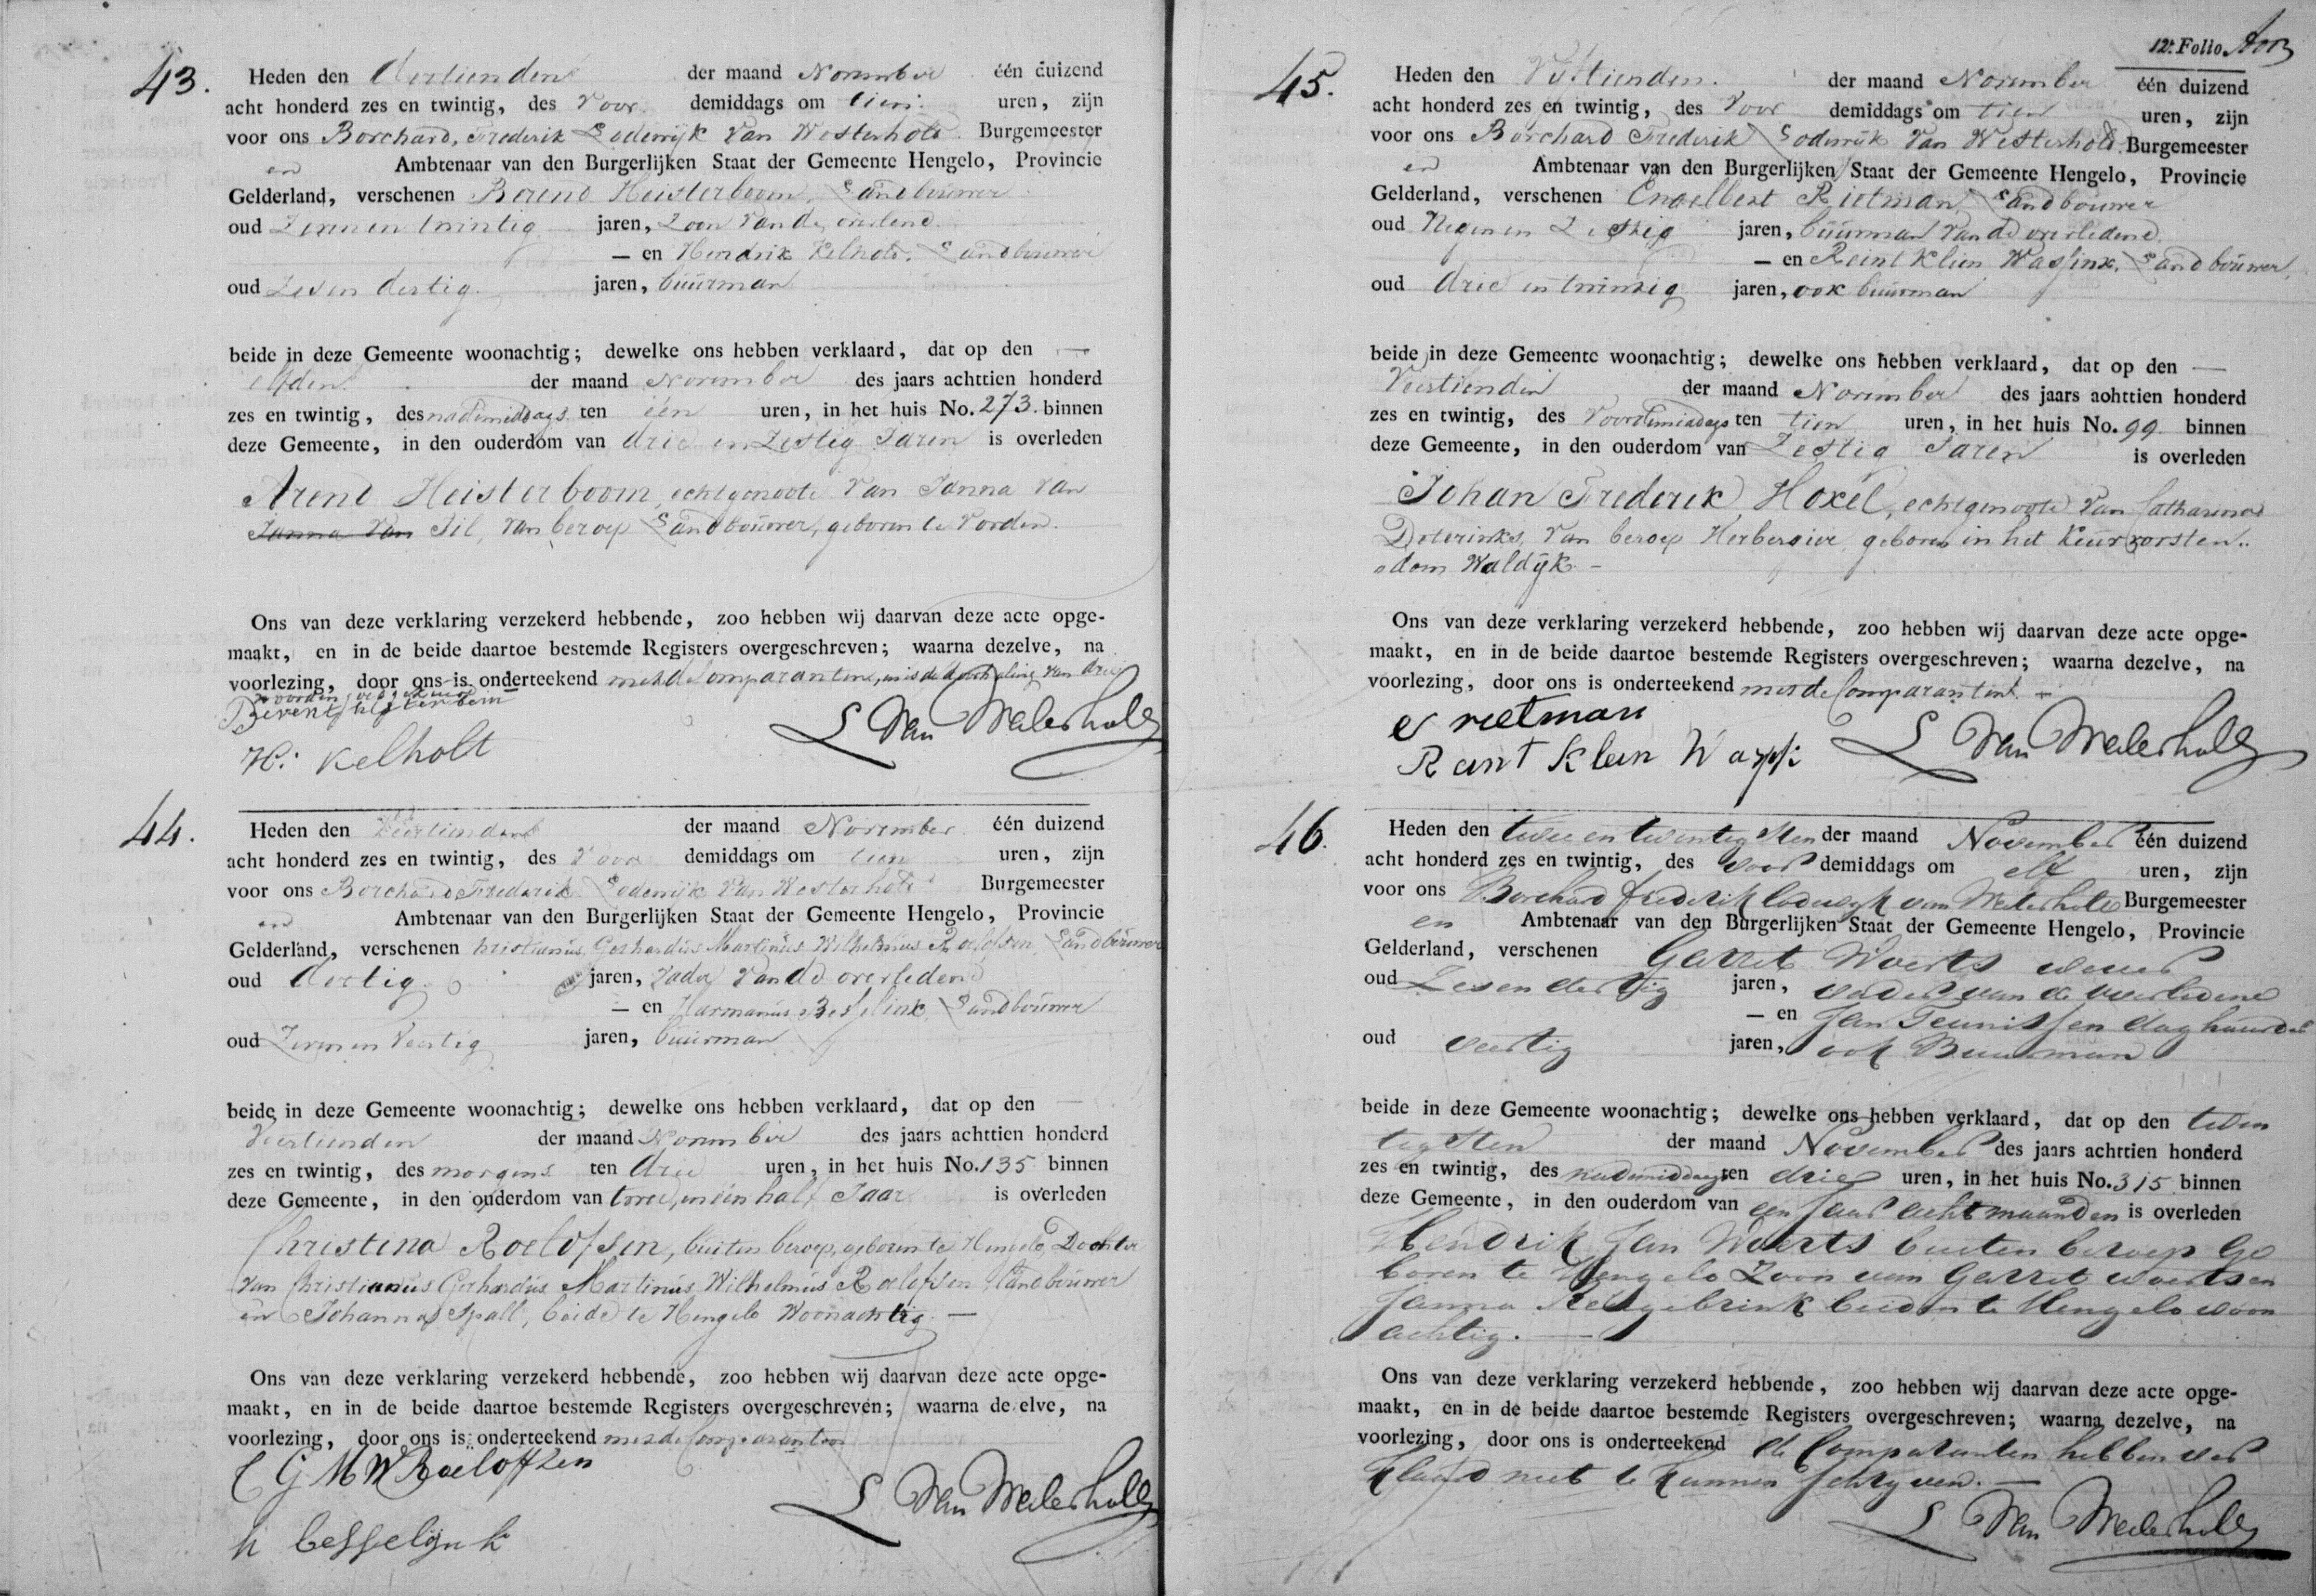 43.
Heden den dertienden der maand November één duizend
acht honderd zes en twintig, des Voor demiddags om tien uren, zijn
voor ons Borchard, Frederik Lodewijk Van Westerholt Burgemeester
en Ambtenaar van den Burgerlijken Staat der Gemeente Hengelo, Provincie
Gelderland, verschenen Berend Heisterboom, Landbouwer
oud Zeven en twintig jaren, Zoon van de overledene
— en Hendrik Kelholt, Landbouwer
oud Zes en dertig jaren, buurman
beide in deze Gemeente woonachtig; dewelke ons hebben verklaard, dat op den —
elfden der maand November des jaars achttien honderd
zes en twintig, des nademiddags ten één uren, in het huis No. 273. binnen
deze Gemeente, in den ouderdom van drie en Zestig Jaren is overleden
Arend Heisterboom, echtgenoote Van Janna Van
Janna Van Til, Van beroep Landbouwer, geboren te Vorden.
Ons van deze verklaring verzekerd hebbende, zoo hebben wij daarvan deze acte opge-
maakt, en in de beide daartoe bestemde Registers overgeschreven; waarna dezelve, na
voorlezing, door ons is onderteekend met de Comparanten, van drie
woorden
H: Kelholt
L Van Westerholt
44.
Heden den Veertienden der maand November één duizend
acht honderd zes en twintig, des Voor demiddags om tien uren, zijn
voor ons Borchard Frederik Lodewijk Van Westerholt Burgemeester
en Ambtenaar van den Burgerlijken Staat der Gemeente Hengelo, Provincie
Gelderland, verschenen Kristianus Gerhardus Martinus Wilhelmus Roelofsen Landbouwer
oud dertig jaren, Vader Van de overleden
— en Harmanus Besselink, Landbouwer
oud Zeven en Veertig jaren, buurman
beide in deze Gemeente woonachtig; dewelke ons hebben verklaard, dat op den —
Veertienden der maand November des jaars achttien honderd
zes en twintig, des morgens ten drie uren, in het huis No. 135 binnen
deze Gemeente, in den ouderdom van twee, en een half Jaar is overleden
Christina Roelofsen, buiten beroep, geboren te Hengelo, Dochter
van Christianus Gerhardus Martinus Wilhelmus Roelofsen Landbouwer
en Johanna Spall, beide te Hengelo Woonachtig. —
Ons van deze verklaring verzekerd hebbende, zoo hebben wij daarvan deze acte opge-
maakt, en in de beide daartoe bestemde Registers overgeschreven; waarna dezelve, na
voorlezing, door ons is onderteekend met de Comparanten
C G M W Roeloffzen
h besselynk
L Van Westerholt
12e. Folio.
45.
Heden den Vijftienden. der maand November één duizend
acht honderd zes en twintig, des Voor demiddags om tien uren, zijn
voor ons Borchard Frederik Lodewijk Van Westerholt Burgemeester
en Ambtenaar van den Burgerlijken Staat der Gemeente Hengelo, Provincie
Gelderland, verschenen Engelbert Rietman, Landbouwer
oud Negen en Zestig jaren, buurman van de overledene
— en Reint Klein Wassink, Landbouwer,
oud drie en twintig jaren, ook buurman
beide in deze Gemeente woonachtig; dewelke ons hebben verklaard, dat op den —
Veertienden der maand November des jaars achttien honderd
zes en twintig, des Voordemiddags ten tien uren, in het huis No. 99 binnen
deze Gemeente, in den ouderdom van Zestig Jaren is overleden
Johan Frederik Hoxel, echtgenoote Van Catharina
Deterinks, Van beroep Herbergier, geboren in het Keurvorsten-
dom Waldijk. —
Ons van deze verklaring verzekerd hebbende, zoo hebben wij daarvan deze acte opge-
maakt, en in de beide daartoe bestemde Registers overgeschreven; waarna dezelve, na
voorlezing, door ons is onderteekend met de Comparanten. —
E rietman
Reint Klein Wassi
L Van Westerholt
46.
Heden den twee en twintigsten der maand November één duizend
acht honderd zes en twintig, des voor demiddags om elf uren, zijn
voor ons Borchard frederik lodewyk van Westerholt Burgemeester
en Ambtenaar van den Burgerlijken Staat der Gemeente Hengelo, Provincie
Gelderland, verschenen Garret Woerts wever
oud Zes en dertig jaren, vader van de overledene
— en Jan Teunissen daghuurder
oud veertig jaren, ook Buurman
beide in deze Gemeente woonachtig; dewelke ons hebben verklaard, dat op den twin
tigsten der maand November des jaars achttien honderd
zes en twintig, des nademiddags ten drie uren, in het huis No. 315 binnen
deze Gemeente, in den ouderdom van een Jaar acht maanden is overleden
Hendrik Jan Woerts buiten beroep Ge
boren te Hengelo Zoon van Garret woerts en
Janna beiden te Hengelo woon
achtig. —
Ons van deze verklaring verzekerd hebbende, zoo hebben wij daarvan deze acte opge-
maakt, en in de beide daartoe bestemde Registers overgeschreven; waarna dezelve, na
voorlezing, door ons is onderteekend de Comparanten hebben ver
klaard niet te kunnen schryven. —
L Van Westerholt